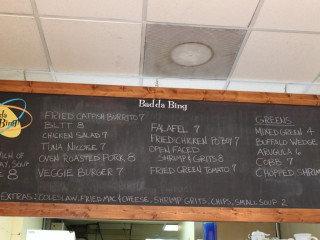 Badda Bing
da
Bing
PICK OF
AY, SOUP
8
FRIED CATFISH BURRITO 7
BLTT 8
CHICKEN SALAD 7
TUNA NICOISE 7
OVEN ROASTED PORK 8
VEGGIE BURGER 7
FALAFEL 7
FRIED CHICKEN PO'BOY 7
OPEN FACED
SHRIMP & GRITS 8
FRIED GREEN TOMATO 7
GREENS
MIXED GREEN 4
BUFFALO WEDGE
ARUGULA 6
COBB 7
CHOPPED SHRIMP
EXTRAS: COLESLAW, FRIED MAC & CHEESE, SHRIMP GRITS, CHIPS, SMALL SOUP 2